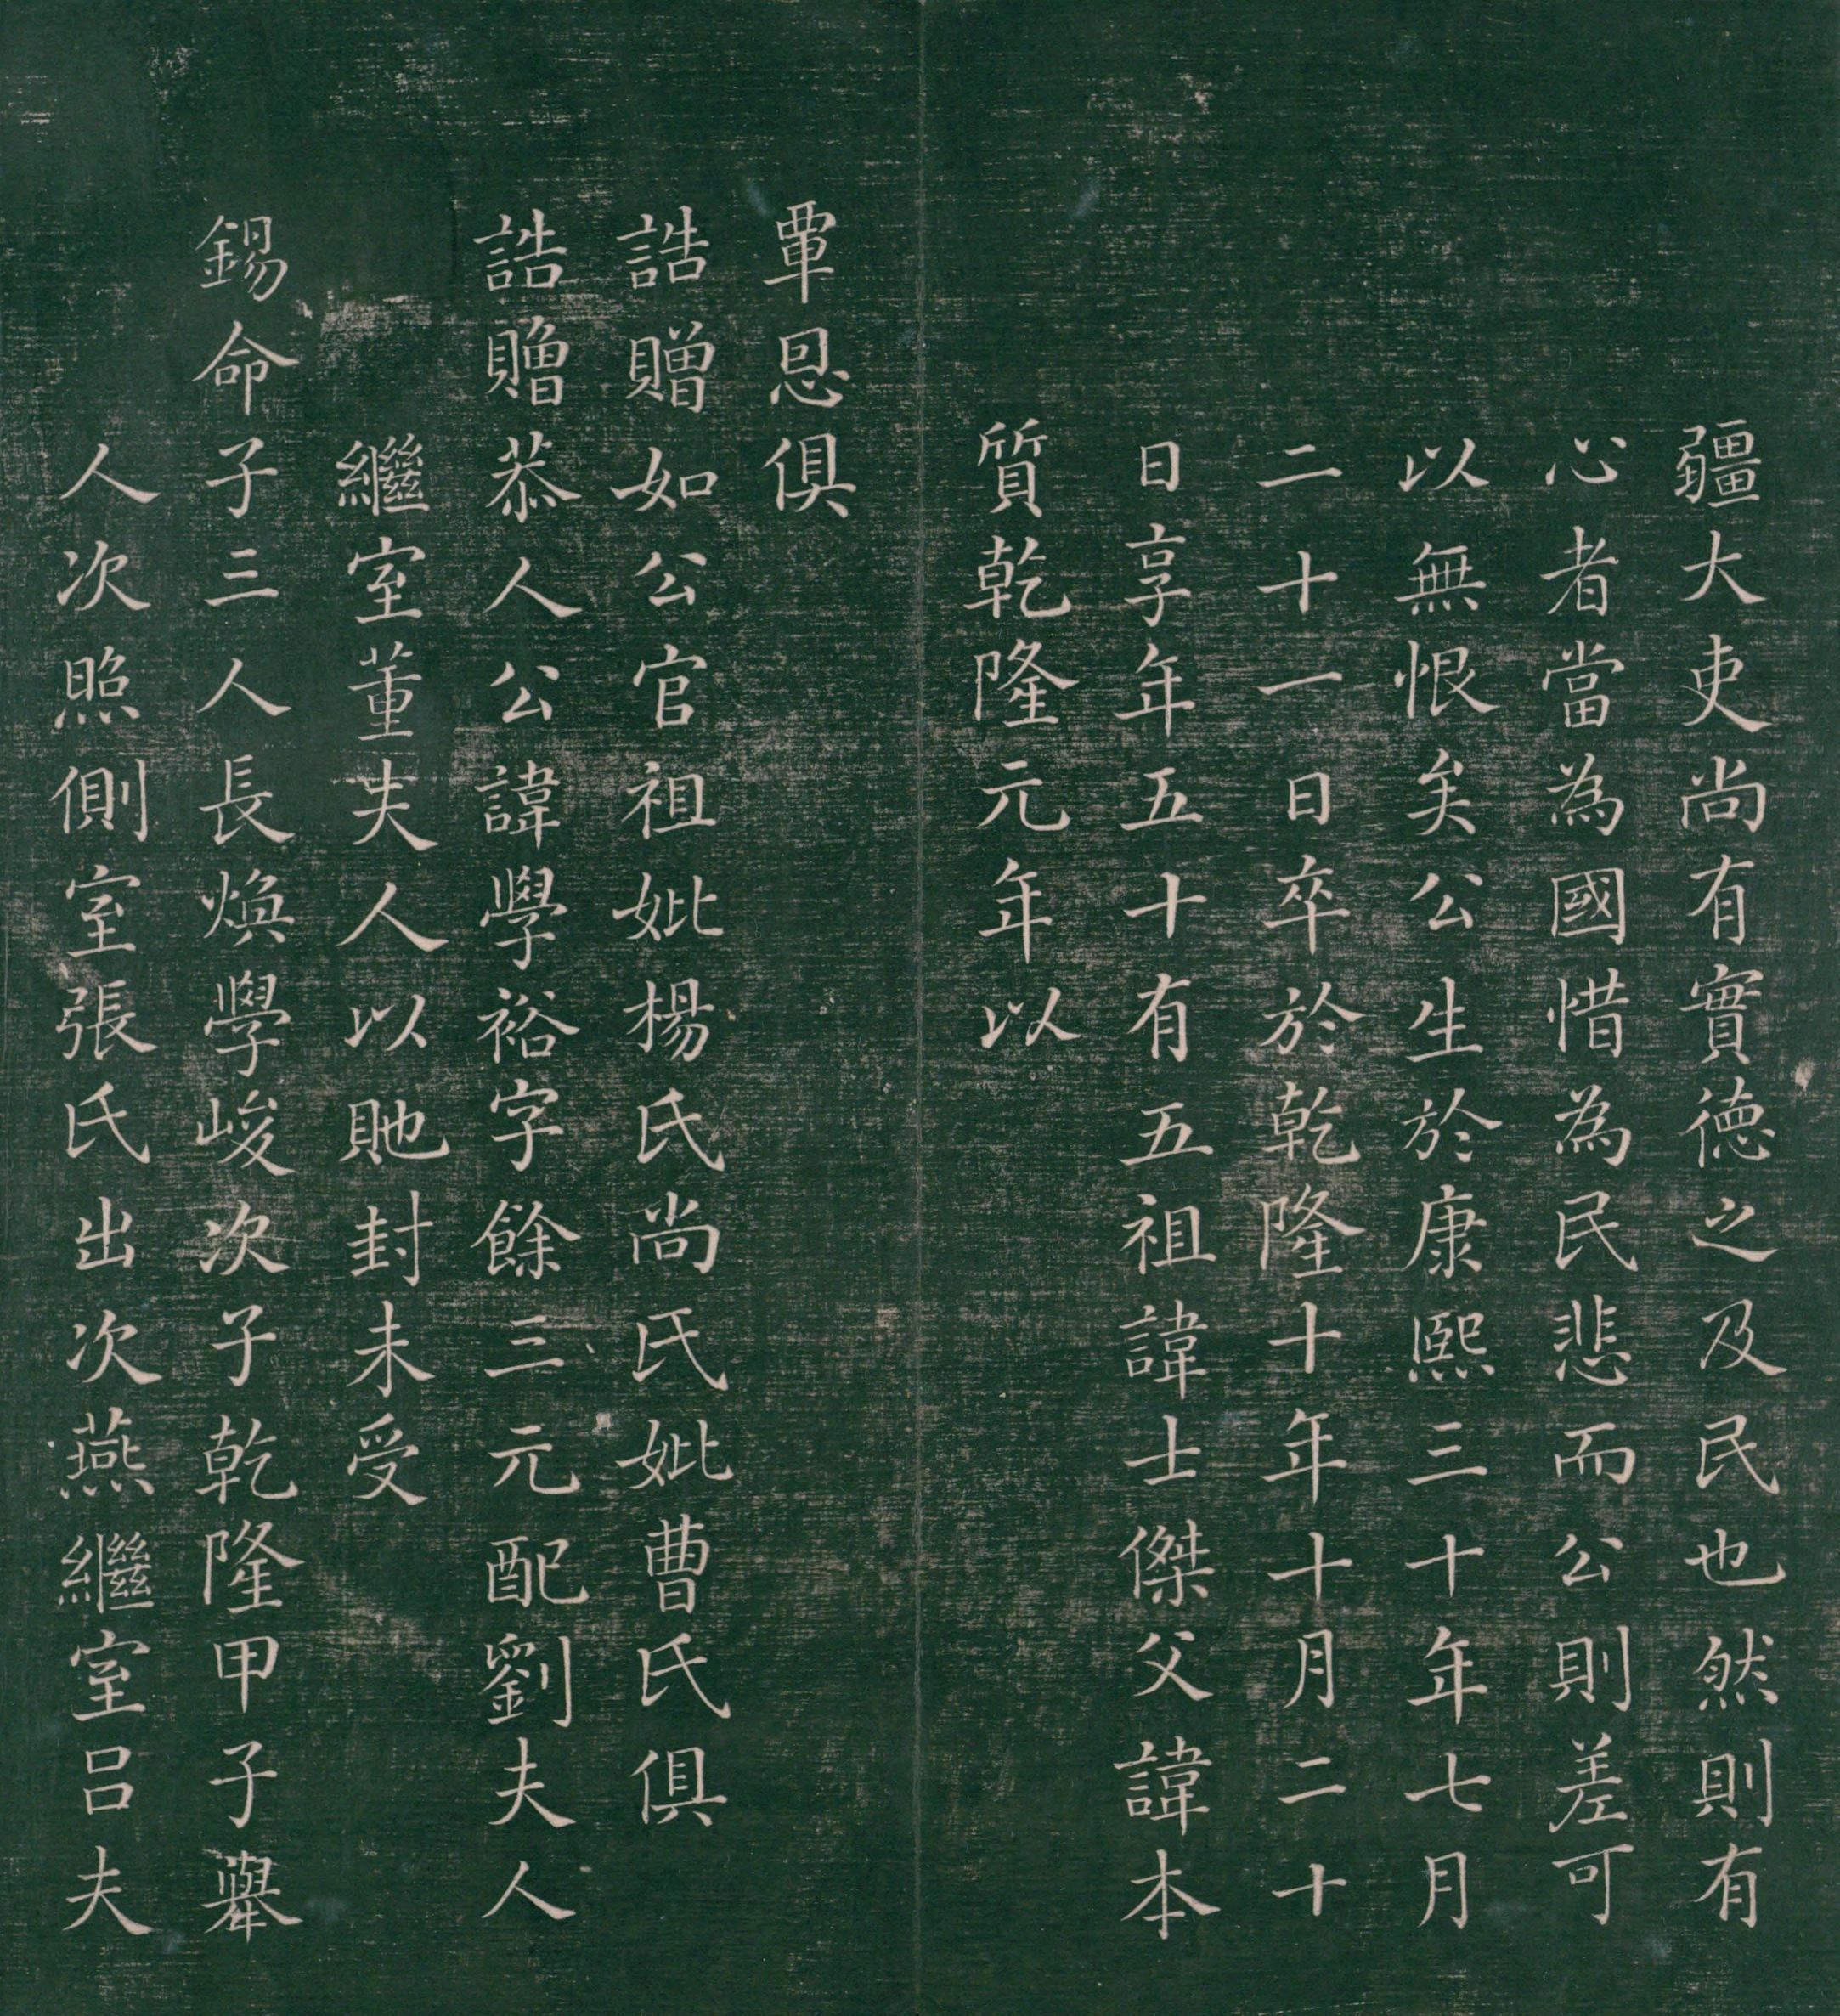 疆大吏尚有實德之及民也然則有
心者當為國惜為民悲而公則差可
以無恨矣公生於康熙三十年七月
二十一日卒於乾隆十年十月二十
日享年五十有五祖諱士傑父諱本
質乾隆元年以
覃恩俱
誥贈如公官祖妣楊氏尚氏妣曹氏俱
誥贈恭人公諱學裕字餘三元配劉夫人
繼室董夫人以貤封未受
錫命子三人長煥學峻次子乾隆甲子舉
人次照側室張氏出次燕繼室呂夫